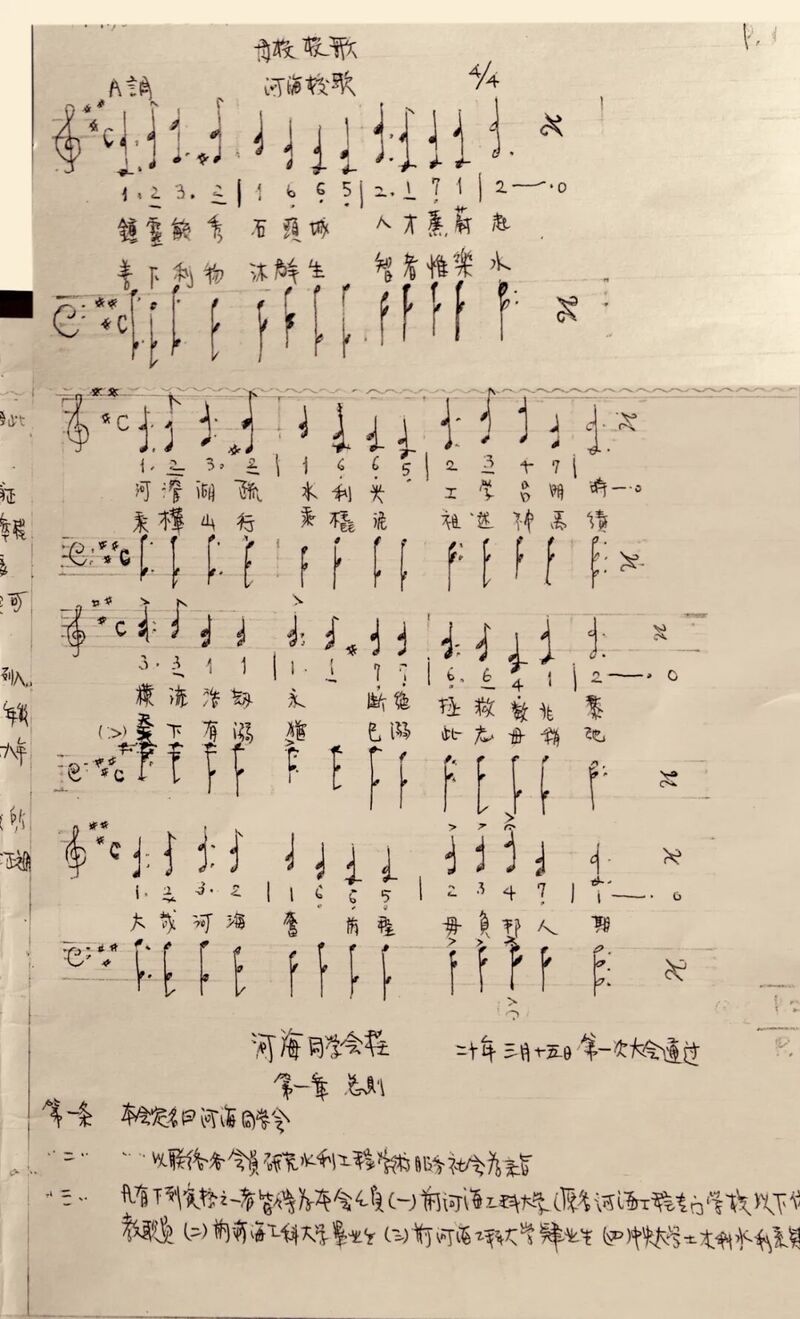 P.1
母校校歌
A調 河海校歌 4/4
1. 2 3. 2 | 1 6 6 5 | 2. 1 7 1 | 2 —. 0
鍾靈毓秀 石頭城 人才蔚起
善下利物 沐群生 智者惟樂水
1. 2 3. 2 | 1 6 6 5 | 2 3 4 7 |
河濬湖疏 水利興 工学昌明時 —. 0
乘欙山行 乘橇泥 祖述神禹績
3. 3 1 1 | 1. 1 7 7 | 6. 6 4 1 | 2 —. 0
橫流浩劫 永 断绝 拯救兆黎
(>) 下有溺 猶己溺 此志毋稍弛
1. 2 3. 2 | 1 6 6 5 | 2 3 4 7 | 1 —. 0
大哉河海 奮前程 毋負邦人期
河海同学会程 二十年三月十五日第一次大会通过
第一章 总则
第一条 本会定名曰河海同学会
〃二〃 〃〃以联络各会員研究水利工程学術服務社会为宗旨
〃三〃 凡有下列資格之一者皆得为本会会員(一)前河海工科大学(原名河海工程专门学校以下
教職員(二)前河海工科大学畢业生(三)前河海工科大学肄业生(四)中央大学土木科水利系